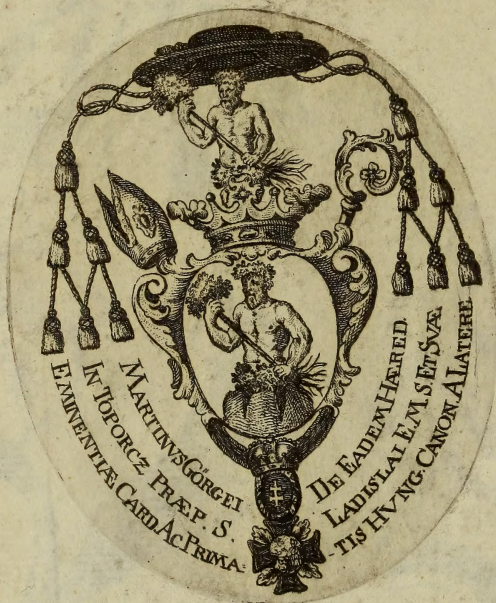 MARTINVS GÖRGEI
DE EADEM HÆRED.
IN TOPORCZ PRÆP. S.
LADISLAI E. M. S. ET SVÆ
EMINENTIÆ CARD. AC PRIMA-
-TIS HVNG. CANON. A LATERE